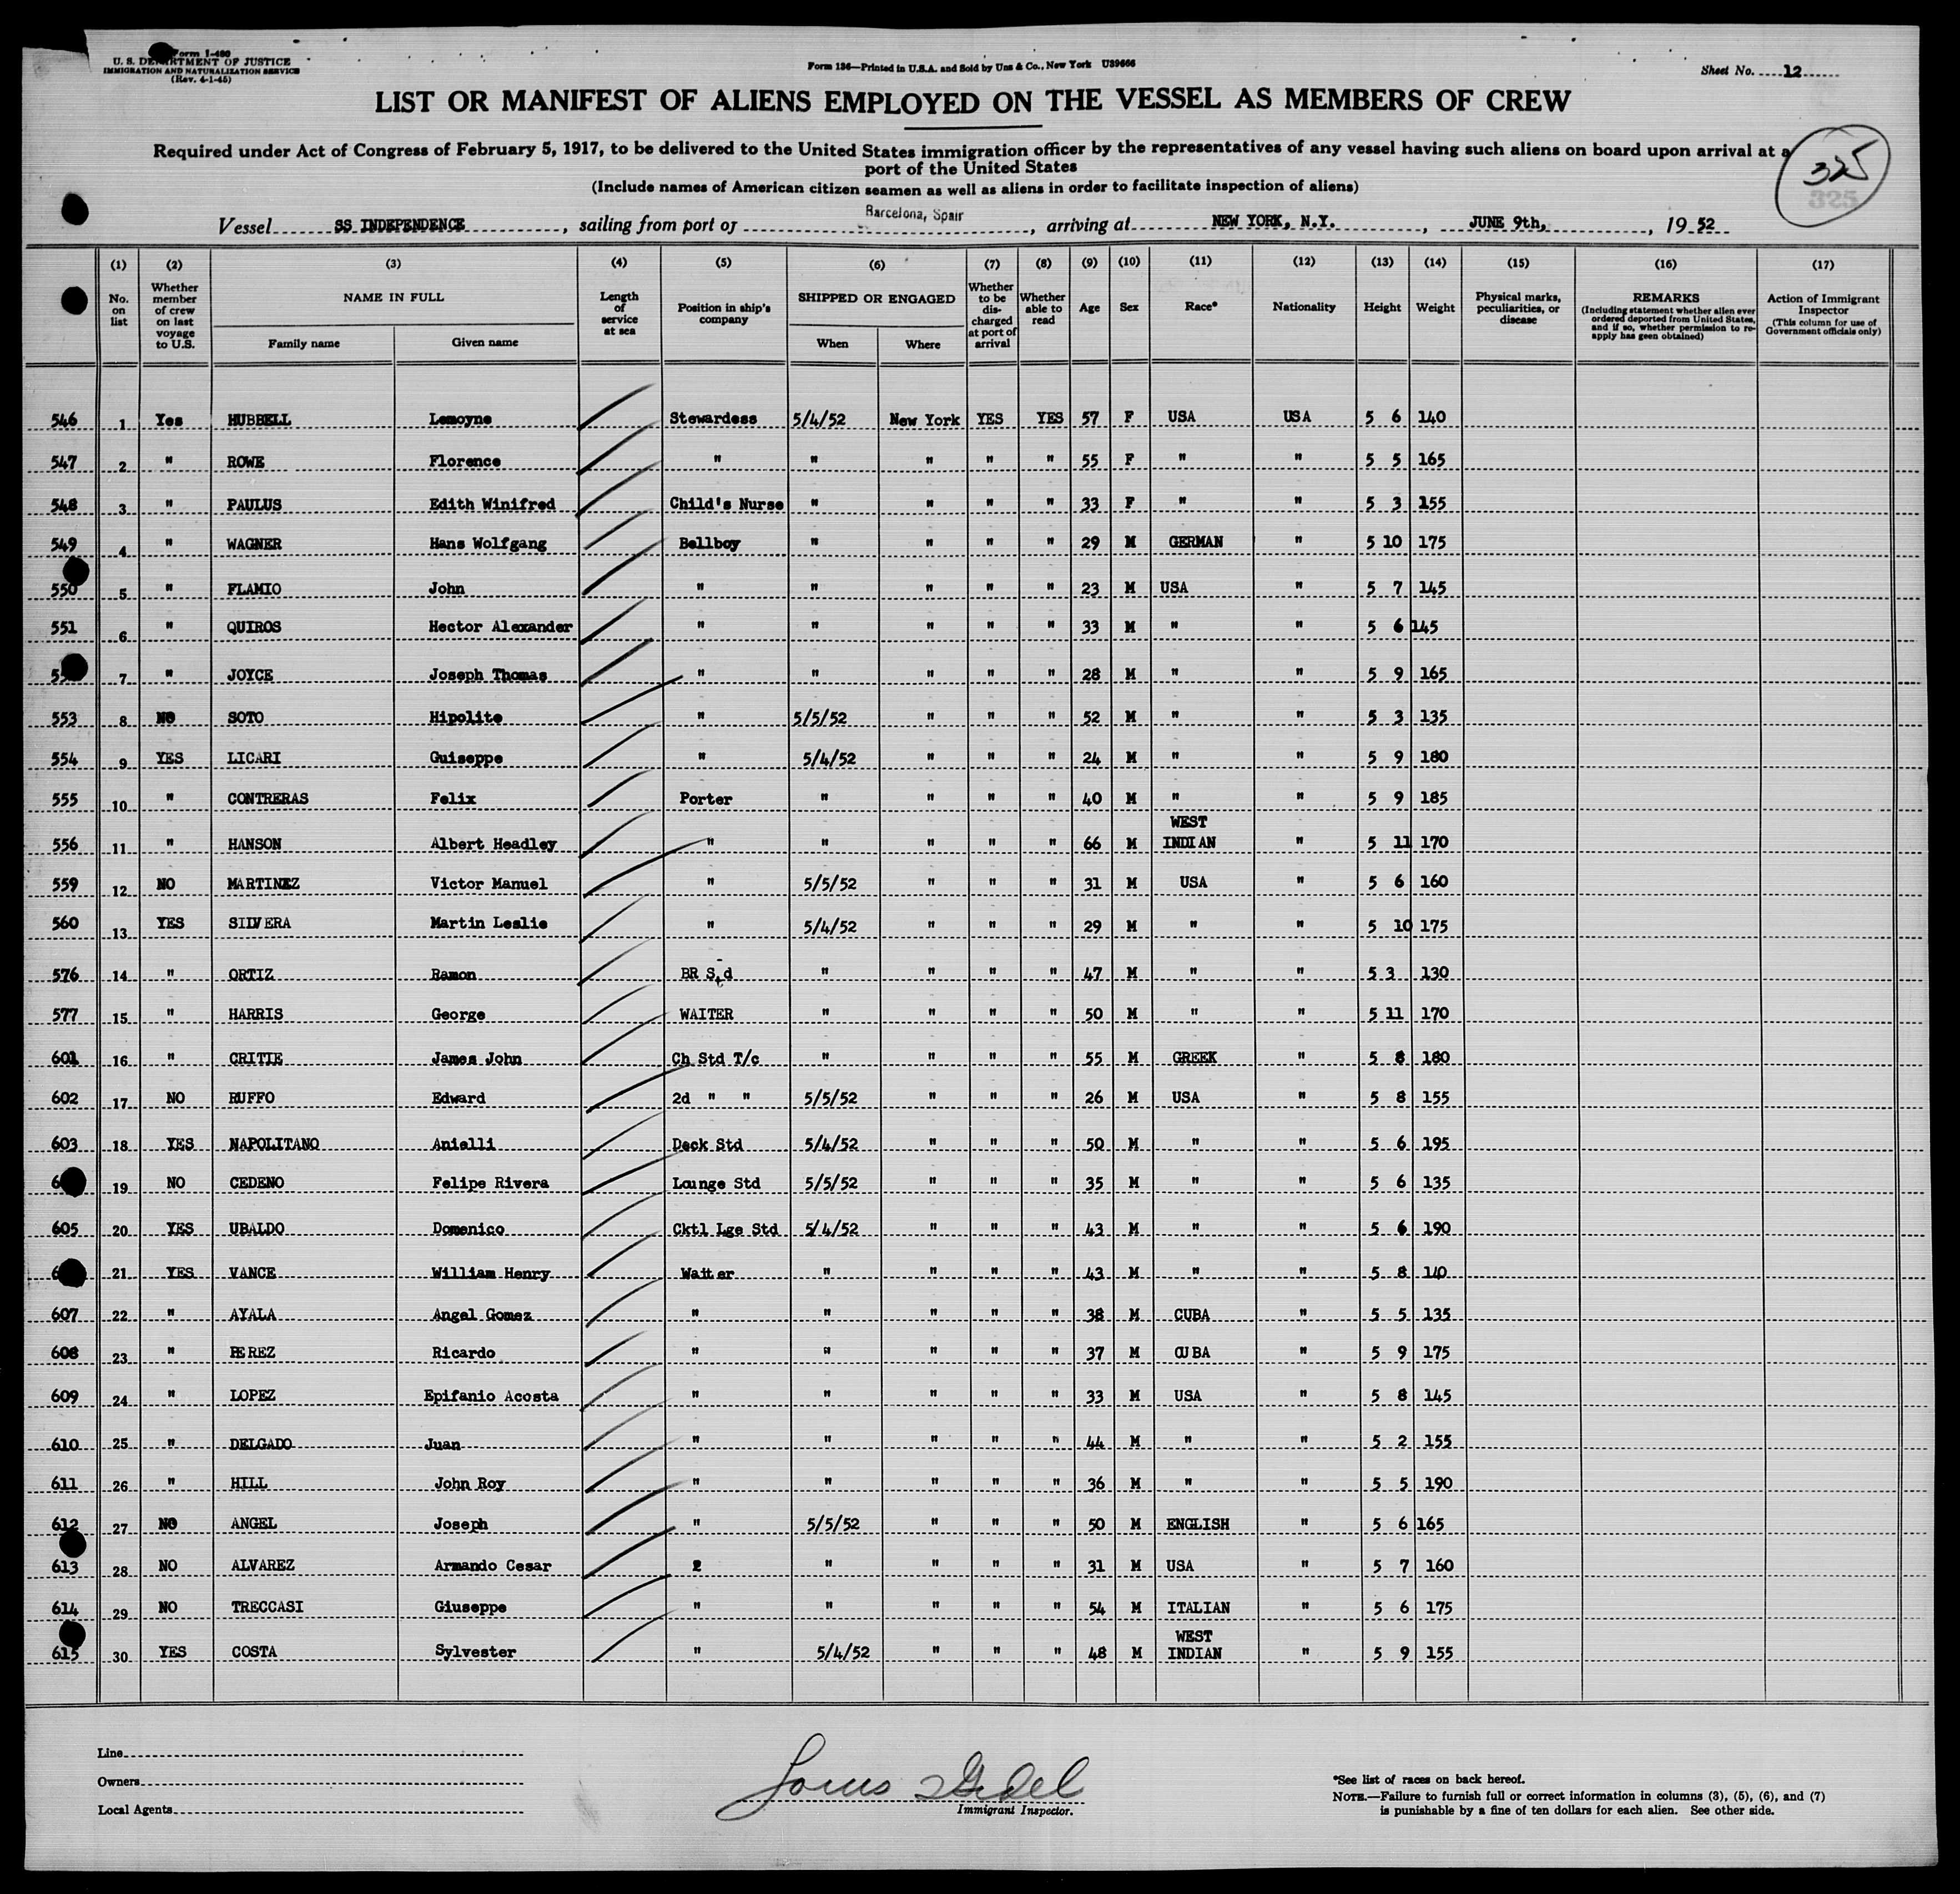 Form I-480
U. S. DEPARTMENT OF JUSTICE
IMMIGRATION AND NATURALIZATION SERVICE
(Rev. 4-1-45)
Form 136—Printed in U.S.A. and Sold by Unz & Co., New York U39666
Sheet No. 12
LIST OR MANIFEST OF ALIENS EMPLOYED ON THE VESSEL AS MEMBERS OF CREW
Required under Act of Congress of February 5, 1917, to be delivered to the United States immigration officer by the representatives of any vessel having such aliens on board upon arrival at a
port of the United States
(Include names of American citizen seamen as well as aliens in order to facilitate inspection of aliens)
325
325
Vessel SS INDEPENDENCE, sailing from port of Barcelona, Spain, arriving at NEW YORK, N.Y., JUNE 9th, 1952
(1) (2) (3) (4) (5) (6) (7) (8) (9) (10) (11) (12) (13) (14) (15) (16) (17)
No. on list
Whether member of crew on last voyage to U.S.
NAME IN FULL
Family name Given name
Length of service at sea
Position in ship's company
SHIPPED OR ENGAGED
When Where
Whether to be discharged at port of arrival
Whether able to read
Age
Sex
Race*
Nationality
Height
Weight
Physical marks, peculiarities, or disease
REMARKS
(Including statement whether alien ever ordered deported from United States, and if so, whether permission to re-apply has geen obtained)
Action of Immigrant Inspector
(This column for use of Government officials only)
546 1 Yes HUBBELL Lemoyne Stewardess 5/4/52 New York YES YES 57 F USA USA 5 6 140
547 2 " ROWE Florence " " " " " 55 F " " 5 5 165
548 3 " PAULUS Edith Winifred Child's Nurse " " " " 33 F " " 5 3 155
549 4 " WAGNER Hans Wolfgang Bellboy " " " " 29 M GERMAN " 5 10 175
550 5 " FLAMIO John " " " " " 23 M USA " 5 7 145
551 6 " QUIROS Hector Alexander " " " " " 33 M " " 5 6 145
7 " JOYCE Joseph Thomas " " " " " 28 M " " 5 9 165
553 8 NO SOTO Hipolite " 5/5/52 " " " 52 M " " 5 3 135
554 9 YES LICARI Guiseppe " 5/4/52 " " " 24 M " " 5 9 180
555 10 " CONTRERAS Felix Porter " " " " 40 M " " 5 9 185
556 11 " HANSON Albert Headley " " " " " 66 M WEST INDIAN " 5 11 170
559 12 NO MARTINEZ Victor Manuel " 5/5/52 " " " 31 M USA " 5 6 160
560 13 YES SILVERA Martin Leslie " 5/4/52 " " " 29 M " " 5 10 175
576 14 " ORTIZ Ramon BR Std " " " " 47 M " " 5 3 130
577 15 " HARRIS George WAITER " " " " 50 M " " 5 11 170
601 16 " CRITIE James John Ch Std T/c " " " " 55 M GREEK " 5 8 180
602 17 NO RUFFO Edward 2d " " 5/5/52 " " " 26 M USA " 5 8 155
603 18 YES NAPOLITANO Anielli Deck Std 5/4/52 " " " 50 M " " 5 6 195
19 NO CEDENO Felipe Rivera Lounge Std 5/5/52 " " " 35 M " " 5 6 135
605 20 YES UBALDO Domenico Cktl Lge Std 5/4/52 " " " 43 M " " 5 6 190
21 YES VANCE William Henry Waiter " " " " 43 M " " 5 8 140
607 22 " AYALA Angel Gomez " " " " " 38 M CUBA " 5 5 135
608 23 " PEREZ Ricardo " " " " " 37 M CUBA " 5 9 175
609 24 " LOPEZ Epifanio Acosta " " " " " 33 M USA " 5 8 145
610 25 " DELGADO Juan " " " " " 44 M " " 5 2 155
611 26 " HILL John Roy " " " " " 36 M " " 5 5 190
612 27 NO ANGEL Joseph " 5/5/52 " " " 50 M ENGLISH " 5 6 165
613 28 NO ALVAREZ Armando Cesar 2 " " " " 31 M USA " 5 7 160
614 29 NO TRECCASI Giuseppe " " " " " 54 M ITALIAN " 5 6 175
615 30 YES COSTA Sylvester " 5/4/52 " " " 48 M WEST INDIAN " 5 9 155
Line
Owners
Local Agents
Immigrant Inspector.
*See list of races on back hereof.
NOTE.—Failure to furnish full or correct information in columns (3), (5), (6), and (7)
is punishable by a fine of ten dollars for each alien. See other side.